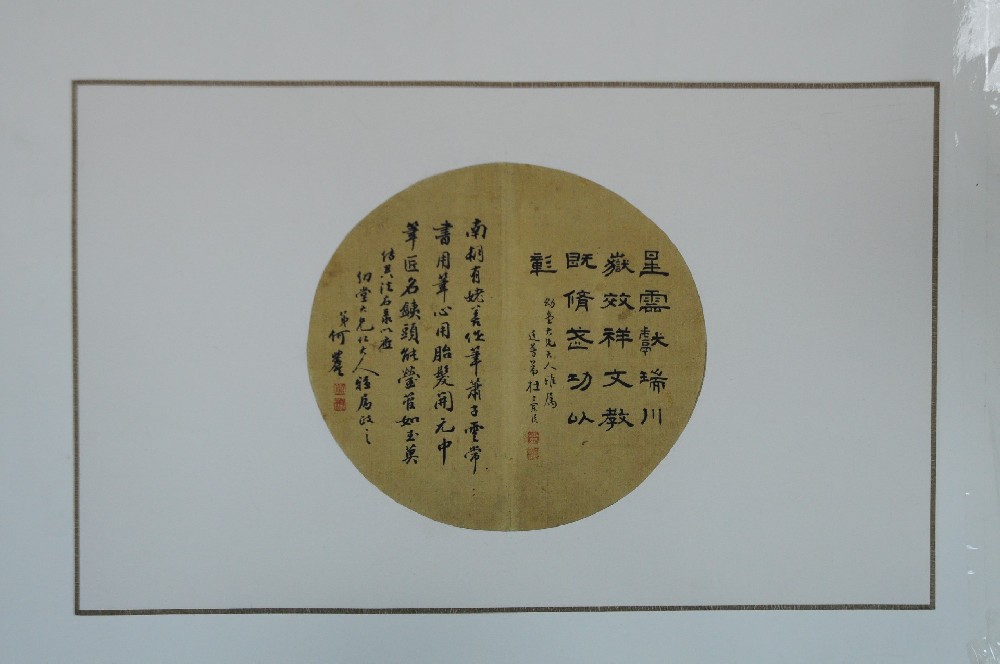 星雲獻瑞川
嶽效祥文教
既脩武功以
彰
幼堂大兄大人雅屬
南朝有姥善作筆蕭子雲常
書用筆心用胎髮開元中
筆匠名鐵頭能瑩管如玉莫
傳其法
幼堂大兄大人 屬政之
弟何